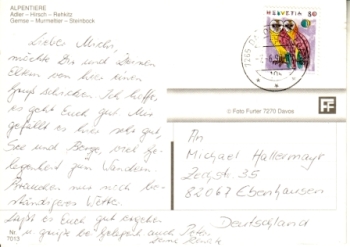 ALPENTIERE
Adler – Hirsch – Rehkitz
Gemse – Murmeltier – Steinbock
HELVETIA 80
Lieber Michi,
möchte Dir und Deinen
Eltern von hier einen
Gruß schicken. Ich hoffe,
es geht Euch gut. Uns
gefällt es hier sehr gut,
See und Berge, viel Ge-
legenheit zum Wandern.
Brauchen nur noch be-
ständigeres Wetter.
Laßt es Euch gut ergehen
u. grüße bei Gelegenh. auch Peter.
Deine
© Foto Furter 7270 Davos
FF
An
Michael Hallermayr
Zergstr. 35
82067 Ebenhausen
Deutschland
Nr.
7013